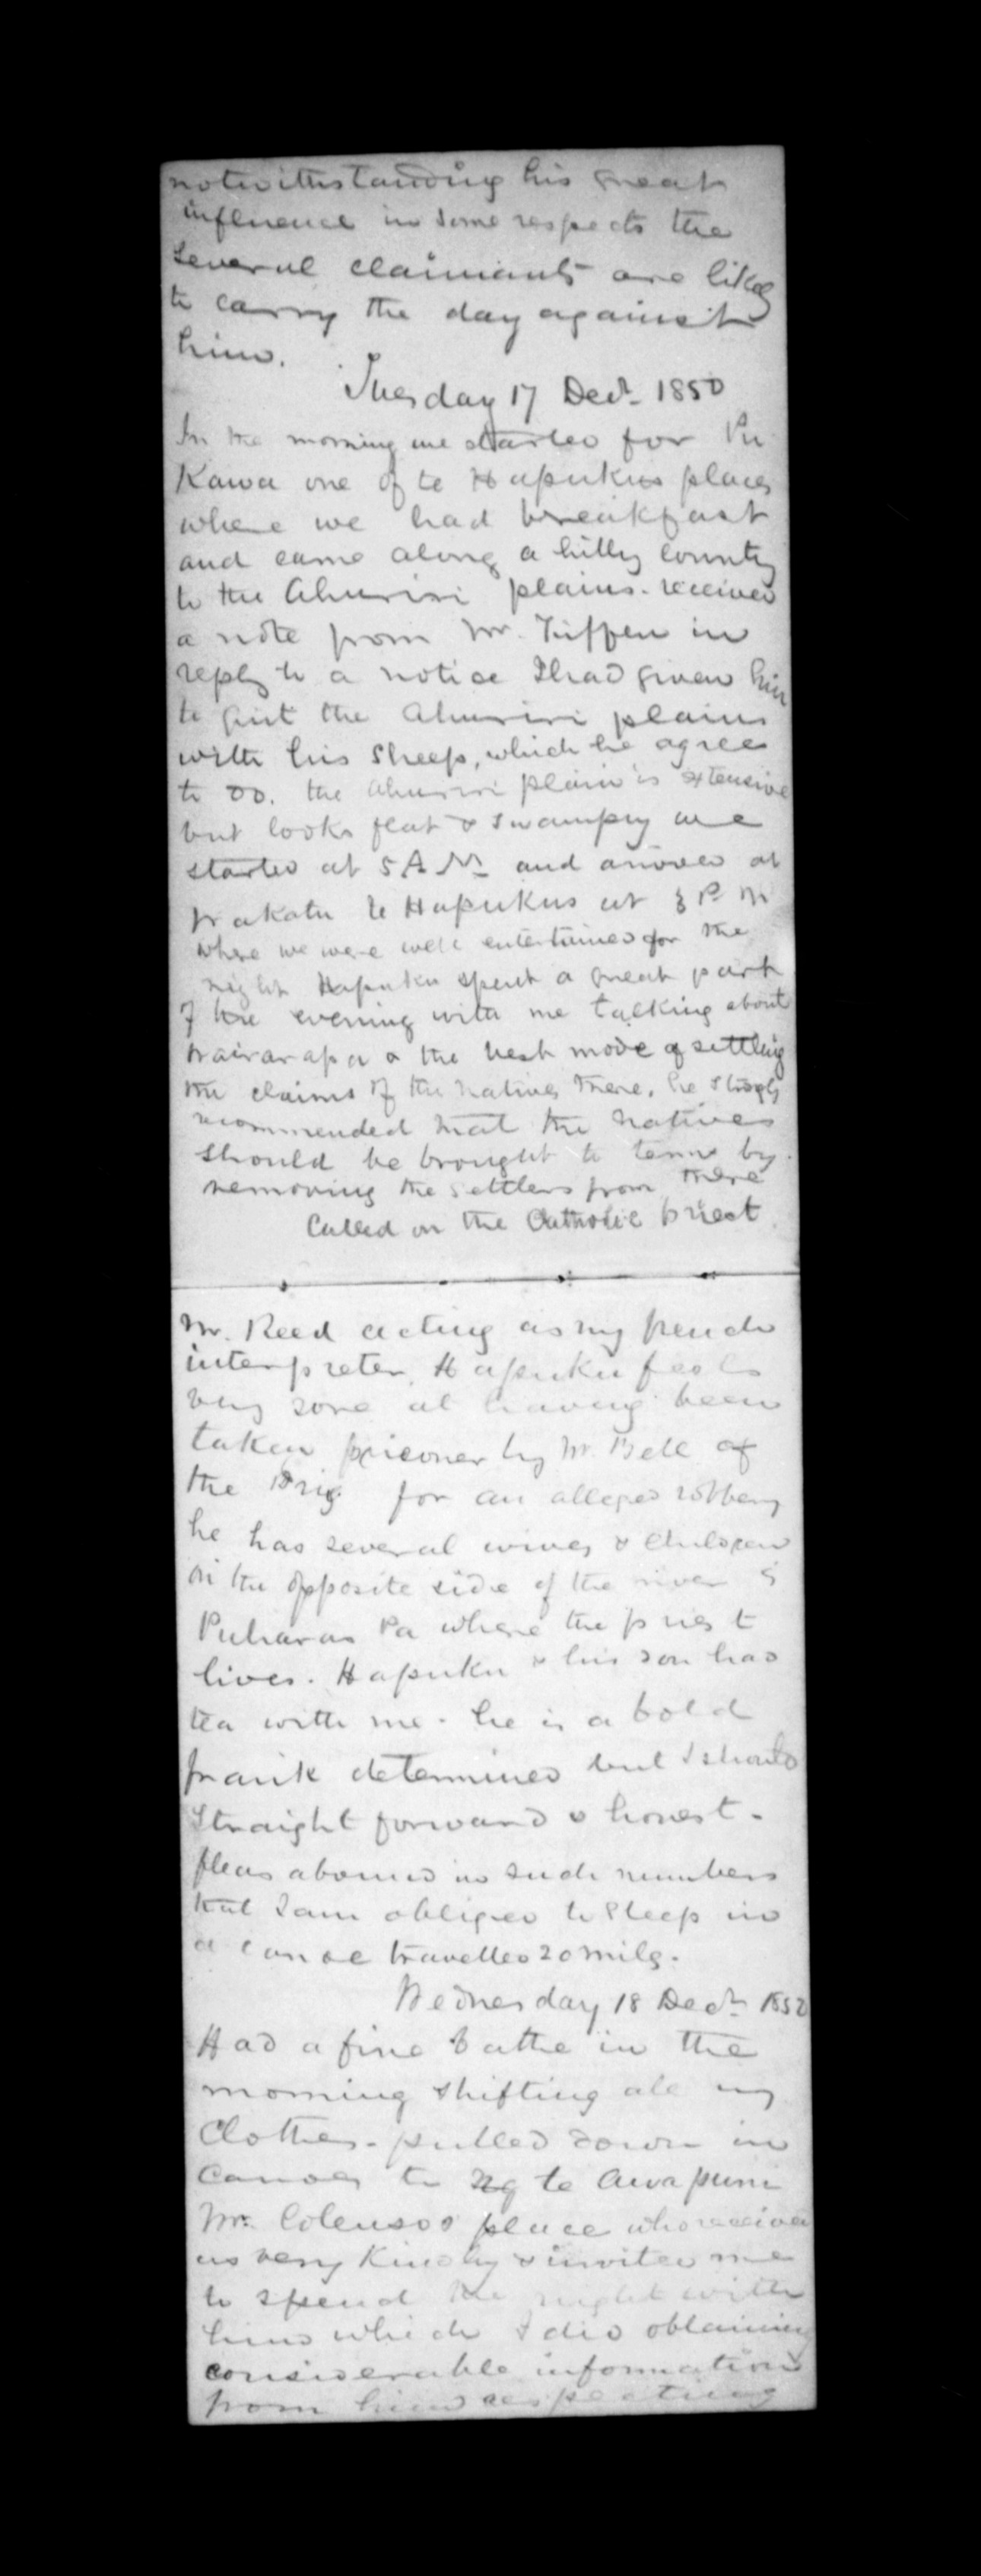 notwithstanding his great
influence in some respects the
several claimants are likely
to carry the day against
him.
Tuesday 17 Decr. 1850
In the morning we started for Pu
Kawa one of te Hapukus places
where we had breakfast
and came along a hilly country
to the Ahuriri plains. received
a note from Mr. Tiffen in
reply to a notice I had given him
to quit the Ahuriri plains
with his sheep, which he agrees
to do. the Ahuriri plain is extensive
but looks flat & swampy we
started at 5 A M and arrived at
Wakatu te Hapukus at 3 P M
where we were well entertained for the
night Hapuku spent a great part
of the evening with me talking about
Wairarapa & the best mode of settling
the claims of the natives there, he strongly
recommended that the natives
should be brought to terms by
removing the settlers from there
Called on the Catholic priest
Mr. Reed acting as my french
interpreter. Hapuku feels
very sore at having been
taken prisoner by Mr. Bell of
the Brig for an alleged robbery
he has several wives & children
on the opposite side of the river
Puharas Pa where the priest
lives. Hapuku & his son had
tea with me. he is a bold
frank determined but I should
straight forward & honest.
fleas abound in such numbers
that I am obliged to sleep in
a canoe travelled 20 miles.
Wednesday 18 Decr. 1850
Had a fine bathe in the
morning shifting all my
Clothes. pulled down in
Canoes to Ng te Awapuni
Mr. Colensos place who received
us very kindly & invited me
to spend the night with
him which I did obtaining
considerable information
from him respecting